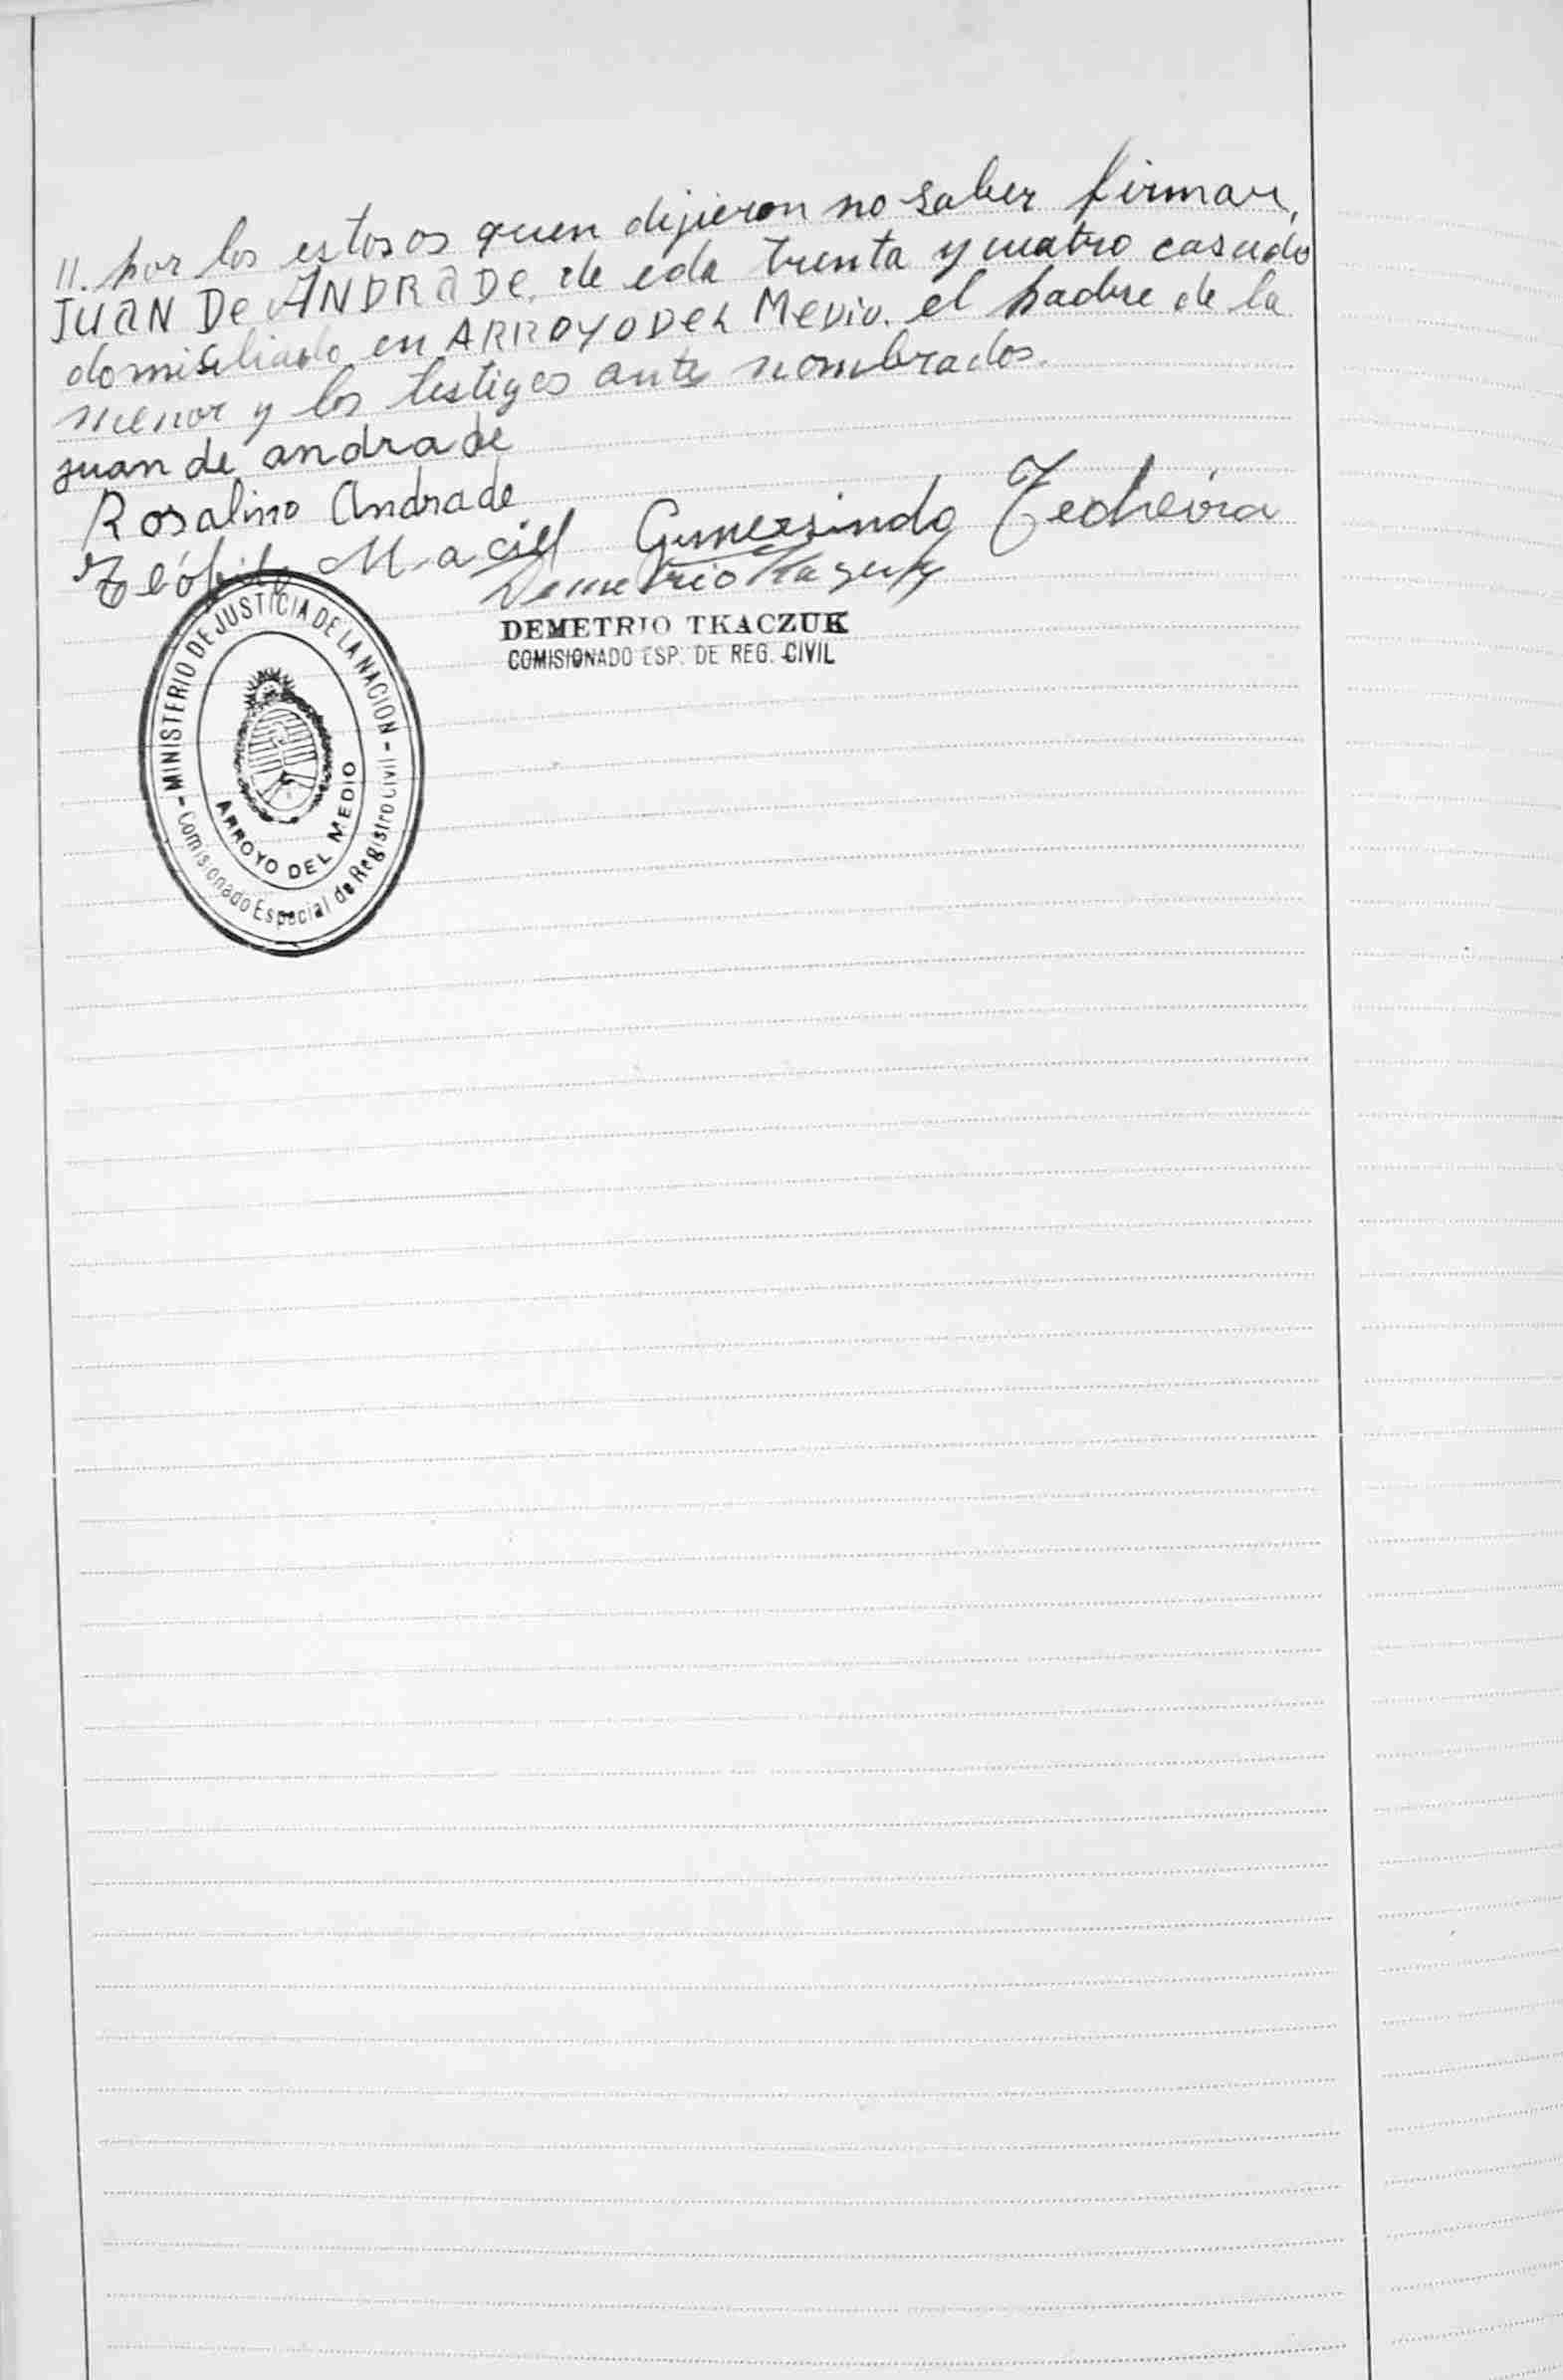 11. por los estosos quen dijieron no saber firmar,
JUAN De ANDRADe. de eda trenta y cuatro casado
domisiliado en ARROYO DEL MeDio. el padre de la
menor y los testigos ante nombrados.
Juan de andrade
Rosalino Andrade
Teófilo Maciel Gumersindo Techeira
Demetrio Tkaczuk
DEMETRIO TKACZUK
COMISIONADO ESP. DE REG. CIVIL
-MINISTERIO DE JUSTICIA DE LA NACION-
Comisionado Especial de Registro Civil
ARROYO DEL MEDIO